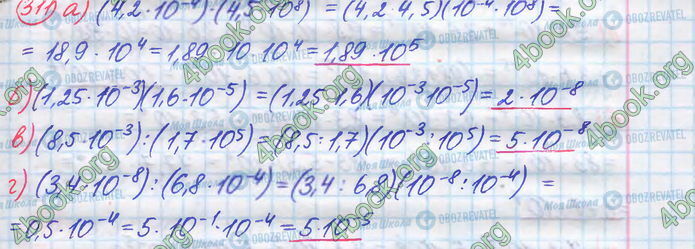 (311) а) (4,2·10⁻⁴)·(4,5·10⁸) = (4,2·4,5)(10⁻⁴·10⁸)=
= 18,9·10⁴=1,89·10·10⁴=1,89·10⁵
б) (1,25·10⁻³)(1,6·10⁻⁵) =(1,25·1,6)(10⁻³·10⁻⁵)= 2·10⁻⁸
в) (8,5·10⁻³):(1,7·10⁵)=(8,5:1,7)(10⁻³:10⁵)=5·10⁻⁸
г) (3,4·10⁻⁸):(6,8·10⁻⁴)=(3,4:6,8)(10⁻⁸:10⁻⁴) =
=0,5·10⁻⁴=5·10⁻¹·10⁻⁴=5·10⁻⁵